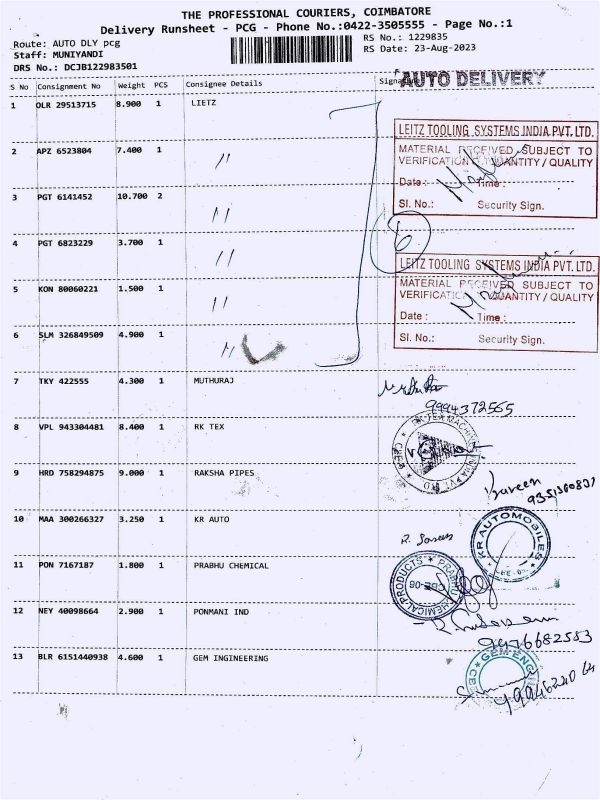 THE PROFESSIONAL COURIERS, COIMBATORE
Delivery Runsheet - PCG - Phone No.:0422-3505555 - Page No.:1
Route: AUTO DLY pcg
Staff: MUNIYANDI
DRS No.: DCJB122983501
RS No.: 1229835
RS Date: 23-Aug-2023
S No Consignment No Weight PCS Consignee Details Signature
AUTO DELIVERY
1 OLR 29513715 8.900 1 LIETZ
2 APZ 6523804 7.400 1 〃
3 PGT 6141452 10.700 2 〃
4 PGT 6823229 3.700 1 〃
5 KON 80060221 1.500 1 〃
6 SLM 326849509 4.900 1 〃
6
LEITZ TOOLING SYSTEMS INDIA PVT. LTD.
MATERIAL RECEIVED SUBJECT TO
VERIFICATION QUANTITY / QUALITY
Date : Time :
Sl. No.: Security Sign.
LEITZ TOOLING SYSTEMS INDIA PVT. LTD.
MATERIAL RECEIVED SUBJECT TO
VERIFICATION QUANTITY / QUALITY
Date : Time :
Sl. No.: Security Sign.
7 TKY 422555 4.300 1 MUTHURAJ
9994372565
8 VPL 943304481 8.400 1 RK TEX
9 HRD 758294875 9.000 1 RAKSHA PIPES
Praveen
10 MAA 300266327 3.250 1 KR AUTO
KR AUTOMOBILES
11 PON 7167187 1.800 1 PRABHU CHEMICAL
PRABHU CHEMICAL PRODUCTS
CBE-06
12 NEY 40098664 2.900 1 PONMANI IND
9976682553
13 BLR 6151440938 4.600 1 GEM INGINEERING
GEM ENG